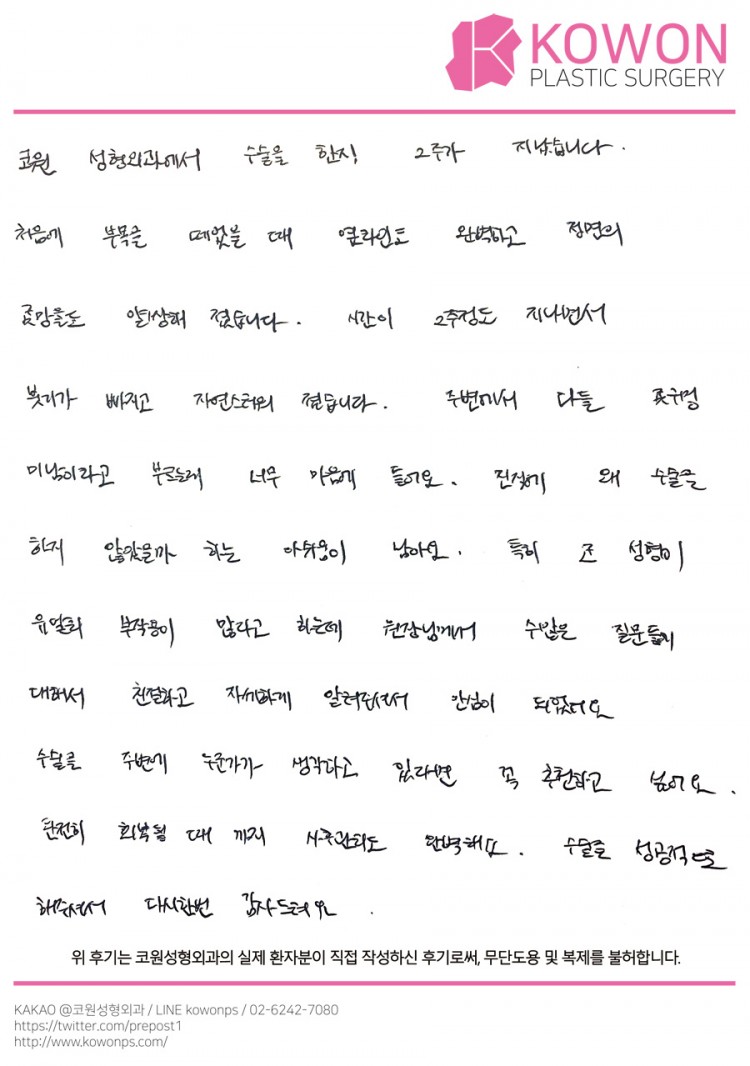 KOWON
PLASTIC SURGERY
코원 성형외과에서 수술을 한지 2주가 지났습니다.
처음에 부목을 떼었을 때 옆라인도 완벽하고 정면의
콧망울도 앞상해 졌습니다. 시간이 2주정도 지나면서
붓기가 빠지고 자연스러워 졌습니다. 주변에서 다들 콧구멍
미남이라고 부르는데 너무 마음에 들어요. 진작에 왜 수술을
하지 않았을까 하는 아쉬움이 남아요. 특히 코 성형이
유일하 부작용이 많다고 하는데 원장님께서 수많은 질문들에
대해서 친절하고 자세하게 알려주셔서 안심이 되었어요
수술을 주변에 누군가가 생각하고 있다면 꼭 추천하고 싶어요.
완전히 회복될 때 까지 사후관리도 완벽해요. 수술을 성공적으로
해주셔서 다시한번 감사드려요.
위 후기는 코원성형외과의 실제 환자분이 직접 작성하신 후기로써, 무단도용 및 복제를 불허합니다.
KAKAO @코원성형외과 / LINE kowonps / 02-6242-7080
https://twitter.com/prepost1
http://www.kowonps.com/